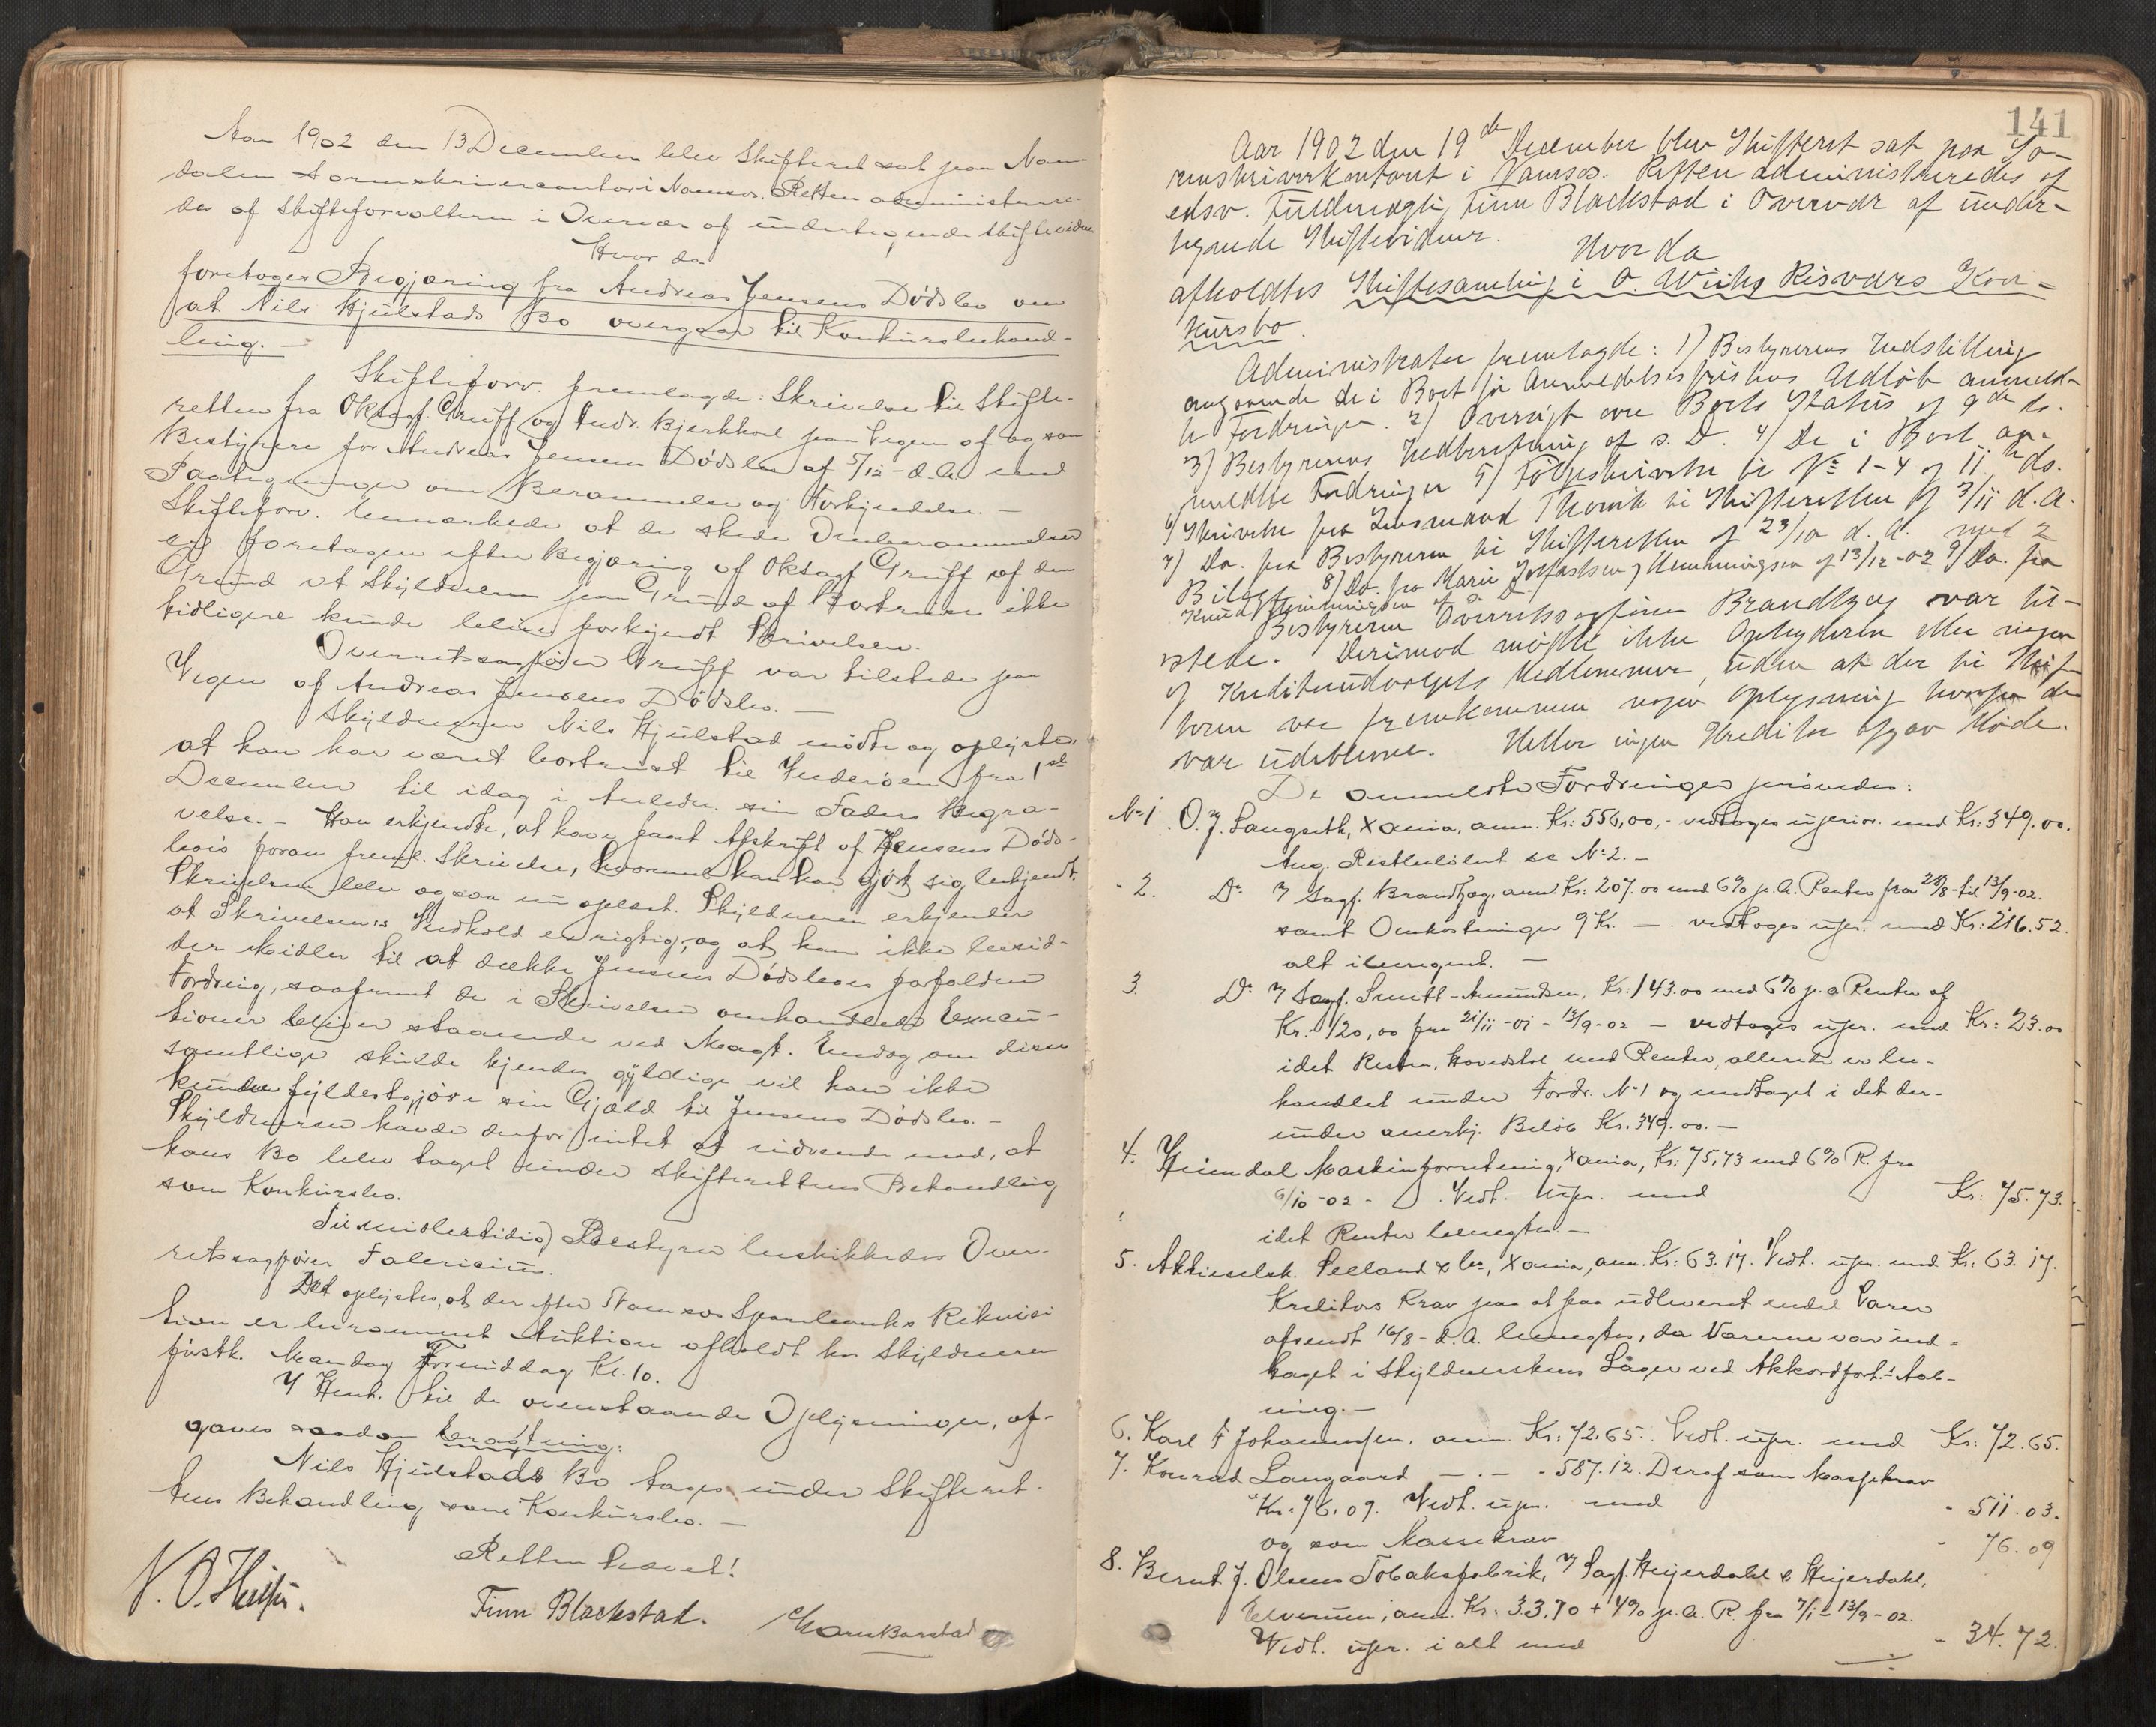 Aar 1902 den 13 December blev Skifteret sat paa Nam-
dalens Sorenskrivercontor i Namsos. Retten administrere-
des af Skifteforvalteren i Overvær af undertegnede Skiftevidner
Hvor da
foretoges Begjæring fra Andreas Jensens Dødsbo om
at Nils Hjulstads Bo overgaar til Konkursbehand-
ling. -
Skifteforv. fremlagde: Skrivelse til Skifte-
retten fra Oksagf. Gruff og Andr. Bjerkhoel paa Vegne af og som
Bestyrere for Andreas Jensens Dødsbo af 5/12 - d.A. med
Paategninger om Berammelse og Forkyndelse. -
Skifteforv. bemærkede at de skede Omberammelser
er foretagen efter Begjæring af Oksagf Gruff af den
Grund at Skyldneren paa Grund af Bortreise ikke
tidligere kunde blive forkyndt Skrivelsen.
Overretssagfører Gruff var tilstede paa
Vegne af Andreas Jensens Dødsbo. -
Skyldneren Nils Hjulstad mødte og oplyste,
at han har været bortreist til Inderøen fra 1ste
December til idag i Anledn. sin Faders Begra-
velse. - Han erkjendte, at have faaet Afskrift af Jensens Døds-
bo's foran freml. Skrivelse, hvormed han har gjort sig bekjendt.
Skrivelsen blev ogsaa nu oplæst. Skyldneren erkjender
at Skrivelsens Indhold er rigtig, og at han ikke besid-
der Midler til at dække Jensens Dødsboes forfaldne
Fordring, saafremt de i Skrivelsen omhandlede Execu-
tioner bliver staaende ved Magt. Endog om disse
samtlige skulde kjendes ugyldige vil han ikke
kunde fyldestgjøre sin Gjæld til Jensens Dødsbo. -
Skyldneren havde derfor intet at indvende mod, at
hans Bo blev taget under Skifterettens Behandling
som Konkursbo.
Til midlertidig Bestyrer beskikkedes Over-
retssagfører Falerium.
Det oplystes, at der efter Namsos Sparebanks Rekvisi
tion er berammet Auktion afholdt hos Skyldneren
førstk. Mandag Formiddag Kl. 10.
I Henh. til de ovenstaaende Oplysninger, af-
gaves saadan Eragtning:
Nils Hjulstads Bo tages under Skifteret-
tens Behandling som Konkursbo. -
Retten hævet!
Finn Blackstad.
141
Aar 1902 den 19de December blev Skifteret sat paa So-
renskriverkontoret i Namsos. Retten administreredes af
edsv. Fuldmægtig Finn Blackstad i Overvær af under-
tegnede Skiftevidner.
Hvor da
afholdtes Skiftesamling i O. Wiiks Risværs Kon-
kursbo.
Administrator fremlagde: 1) Bestyrerens Indstilling
angaaende de i Boet før Anmeldelsesfristens Udløb anmeld-
te Fordringer. 2) Oversigt over Boets Status af 9de ds.
3) Bestyrerens Indberetning af s. D. 4) De i Boet an-
meldte Fordringer 5) Følgeskrivelse til No 1-4 af 11te ds.
6) Skrivelse fra Lensmand Thorvik til Skifteretten af 3/11 d.A.
7) Do. fra Bestyreren til Skifteretten af 23/10 d.A. med 2
Bilag 8) Do. fra Marie Henningsen af 13/12-02 9) Do. fra
Knud Henningsen af s. D.
Bestyreren Overretssagfører Brandtzæg var til-
stede. Derimod mødte ikke Opbyderen eller nogen
af Kreditorudvalgets Medlemmer, uden at der til Skif-
teren var fremkommen nogen Oplysning hvorfor de
var udeblevne. Heller ingen Kreditor afgav Møde.
De anmeldte Fordringer prøvedes:
No 1. O. J. Langseth, Xania, anm. Kr: 556,00, - vedtoges uprior. med Kr: 349.00.
Ang. Restbeløbet se No 2. -
- 2. Do v/ Sagf. Brandtzæg, anm. Kr: 207.00 med 6% p.A. Renter fra 28/8 - til 13/9-02.
samt Omkostninger 9 Kr. - vedtoges upr. med Kr: 216.52.
alt iberegnet. -
3. Do v/ Sagf. Smitt-Amundsen, Kr: 143.00 med 6% p.a Renter af
Kr: 120,00 fra 21/11-01 - 13/9-02 - vedtoges upr. med Kr: 23.00
idet Resten, Hovedstol med Renter, allerede er be-
handlet under Fordr. No 1 og medtaget i det der-
under anerkj. Beløb Kr. 349.00. -
4. Heimdal Maskinforretning, Xania, Kr: 75,73 med 6% R. fra
6/10-02 - Vedt. upr. med Kr: 75.73.
idet Renter benegtes. -
5. Aktieselsk. Selland & Co, Xania, anm. Kr: 63.17. Vedt. upr. med Kr: 63.17.
Kreditors Krav paa at faa udleveret endel Varer
afsendt 16/8 - d.A. benegtes, da Varerne var ind-
taget i Skyldnerskens Lager ved Akkordforh.s Aab-
ning. -
6. Karl F Johannessen. anm. Kr: 72.65. Vedt. upr. med Kr: 72.65.
7. Konrad Langaard - . - - 587.12. Deraf som Massekrav
Kr: 76.09. Vedt. upr. med - 511.03.
og som Massekrav - 76.09
8. Bernt J. Olsens Tobaksfabrik, v/ Sagf. Heyerdahl & Heyerdahl,
Elverum, anm. Kr: 33,70 + 4% p.A. R. fra 7/1 - 13/9-02.
Vedt. upr. i alt med - 34.72.